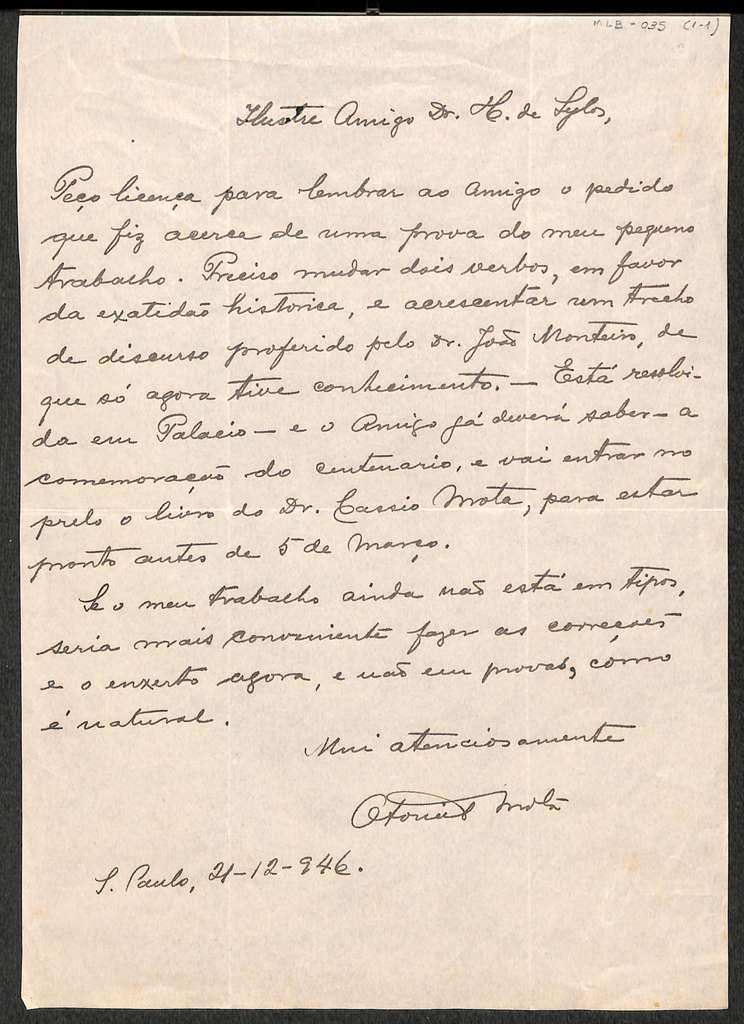 MLB-035 (1-1)
Ilustre Amigo Dr. H. de Sylos,
Peço licença para lembrar ao Amigo o pedido
que fiz acerca de uma prova do meu pequeno
trabalho. Preciso mudar dois verbos, em favor
da exatidão historica, e acrescentar um trecho
de discurso proferido pelo Dr. João Monteiro, de
que só agora tive conhecimento. — Está resolvi-
da em Palacio — e o Amigo já deverá saber — a
comemoração do centenario, e vai entrar no
prelo o livro do Dr. Cassio Mota, para estar
pronto antes de 5 de Março.
Se o meu trabalho ainda não está em tipos,
seria mais conveniente fazer as correções
e o enxerto agora, e não em provas, como
é natural.
Mui atenciosamente
Otoniel Mota
S. Paulo, 21-12-946.